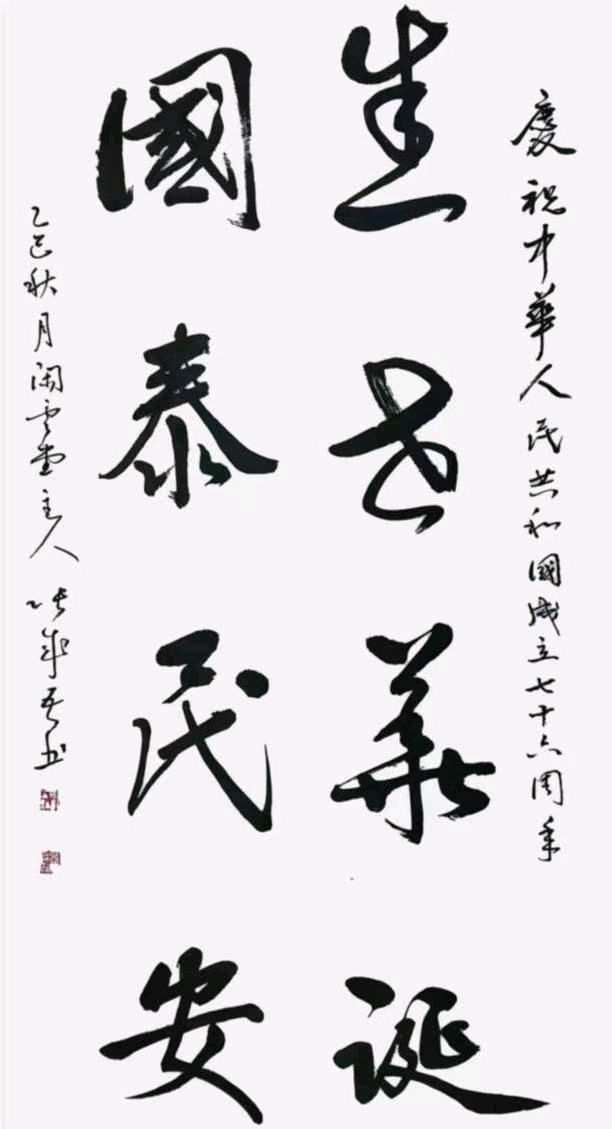 慶祝中華人民共和國成立七十六周年
盛世華誕
國泰民安
乙巳秋月閑雲堂主人張書